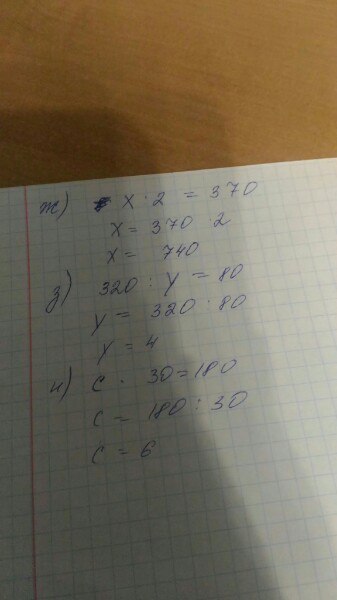 ж) х · 2 = 370
х = 370 · 2
х = 740
з) 320 : у = 80
у = 320 : 80
у = 4
и) с · 30 = 180
с = 180 : 30
с = 6